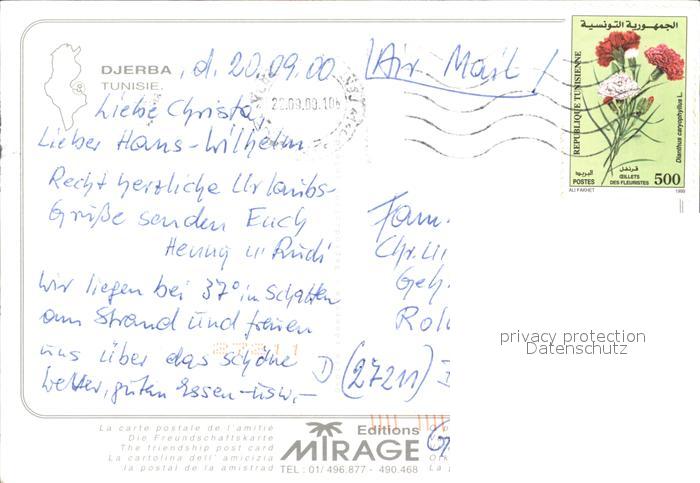 DJERBA, d. 20.09.00
TUNISIE.
Air Mail!
22.09.00.10
Liebe Christa,
Lieber Hans-Wilhelm
Recht herzliche Urlaubs-
Grüße senden Euch
Henny u Rudi
Wir liegen bei 37° im Schatten
am Strand und freuen
uns über das schöne
Wetter, guten Essen-usw.-
27211
الجمهورية التونسية
REPUBLIQUE TUNISIENNE
Dianthus caryophyllus L.
قرنفل
البريد
POSTES
ŒILLETS
DES FLEURISTES
500
ALI FAKHET
1999
Fam.
Chr.
Geh.
D (27211)
privacy protection
Datenschutz
La carte postale de l'amitié
Die Freundschaftskarte
The friendship post card
La cartolina dell' amicizia
la postal de la amistrad
Editions
MIRAGE
TEL : 01/ 496.877 - 490.468